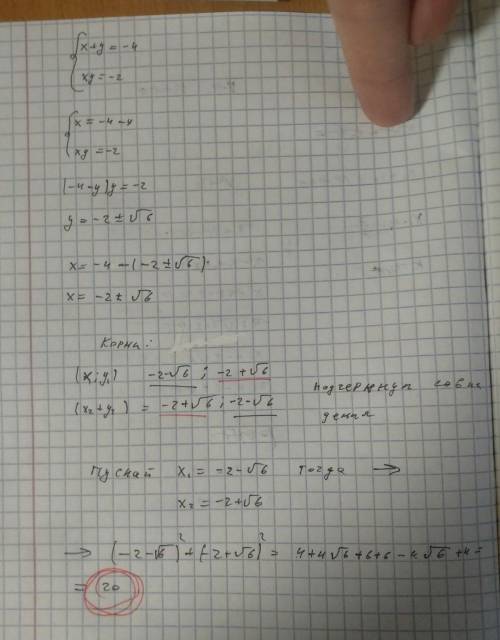 x+y = -4
xy = -2
x = -4 - y
xy = -2
(-4-y)y = -2
y = -2 ± √6
x = -4 - (-2 ± √6)
x = -2 ± √6
Корни:
(x₁y₁) -2-√6 ; -2+√6
(x₂+y₂) = -2+√6 ; -2-√6
подчеркнул совпа
дения
Пускай x₁ = -2-√6 тогда →
x₂ = -2+√6
→ (-2-√6)² + (-2+√6)² = 4+4√6+6+6-4√6+4=
= 20